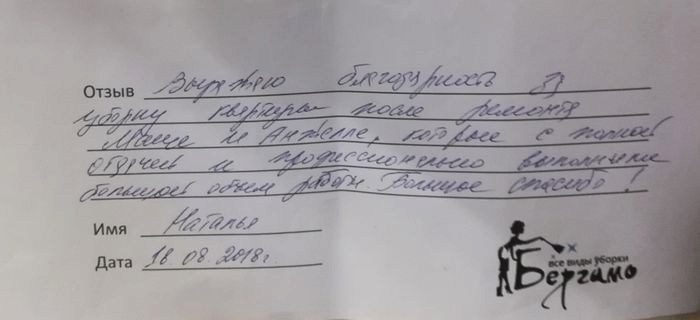 Отзыв Выражаю благодарность за
уборку квартиры после ремонта
Маше и Анжелле, которые с полной
отдачей и профессионально выполнили
большой объем работы. Большое спасибо!
Имя Наталья
Дата 18.08.2018г.
все виды уборки
Бергамо